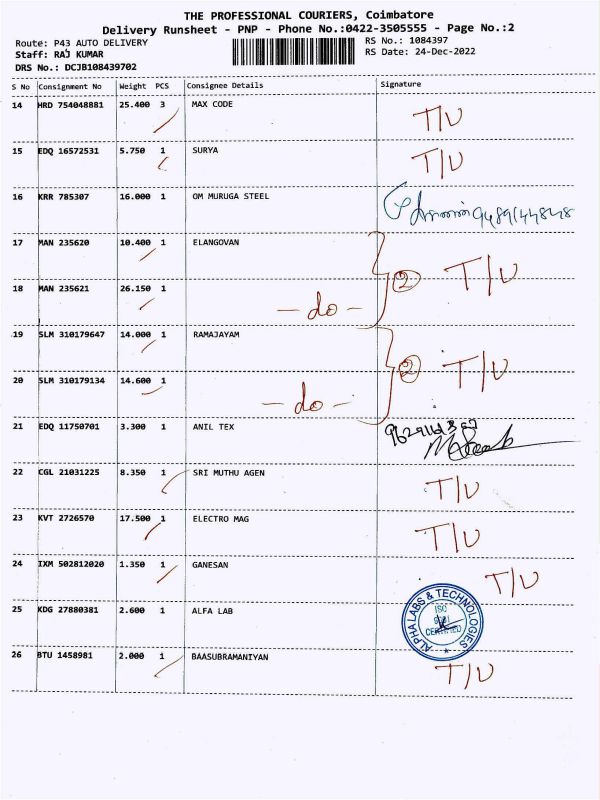 THE PROFESSIONAL COURIERS, Coimbatore
Delivery Runsheet - PNP - Phone No.:0422-3505555 - Page No.:2
Route: P43 AUTO DELIVERY
RS No.: 1084397
Staff: RAJ KUMAR
RS Date: 24-Dec-2022
DRS No.: DCJB108439702
S No Consignment No Weight PCS Consignee Details Signature
14 HRD 754048881 25.400 3 MAX CODE T/U
15 EDQ 16572531 5.750 1 SURYA T/U
16 KRR 785307 16.000 1 OM MURUGA STEEL
17 MAN 235620 10.400 1 ELANGOVAN
② T/U
18 MAN 235621 26.150 1 - do -
19 SLM 310179647 14.000 1 RAMAJAYAM
② T/U
20 SLM 310179134 14.600 1 - do -
21 EDQ 11750701 3.300 1 ANIL TEX
22 CGL 21031225 8.350 1 SRI MUTHU AGEN T/U
23 KVT 2726570 17.500 1 ELECTRO MAG T/U
24 IXM 502812020 1.350 1 GANESAN T/U
25 KDG 27880381 2.600 1 ALFA LAB
ALPHA LABS & TECHNOLOGIES
ISO
9001
CERTIFIED
26 BTU 1458981 2.000 1 BAASUBRAMANIYAN T/U